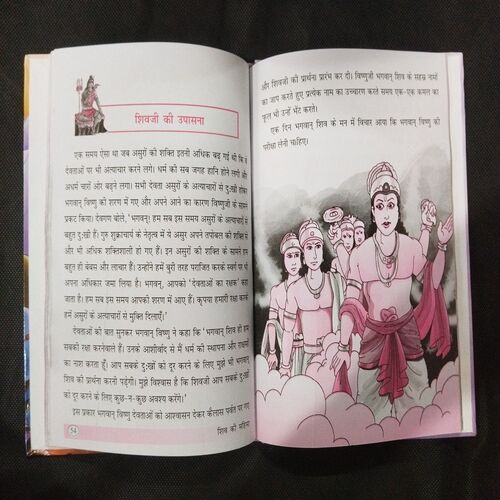 शिवजी की उपासना
एक समय ऐसा था जब असुरों की शक्ति इतनी अधिक बढ़ गई थी कि वे
देवताओं पर भी अत्याचार करने लगे। धर्म की सब जगह हानि होने लगी और
अधर्म चारों ओर बढ़ने लगा। सभी देवता असुरों के अत्याचारों से दुःखी होकर
भगवान् विष्णु की शरण में गए और अपने आने का कारण विष्णुजी के सामने
प्रकट किया। देवगण बोले, 'भगवन्! हम सब इस समय असुरों के अत्याचारों से
बहुत ही दुःखी हैं। गुरु शुक्राचार्य के नेतृत्व में ये असुर अपने तपोबल की शक्ति से
और भी अधिक शक्तिशाली हो गए हैं। इन असुरों की शक्ति के सामने हम
बहुत ही बेबस और लाचार हैं। उन्होंने हमें बुरी तरह पराजित करके स्वर्ग पर भी
अपना अधिकार जमा लिया है। भगवन्, आपको 'देवताओं का रक्षक' कहा जाता
है। हम सब इस समय आपकी शरण में आए हैं। कृपया हमारी रक्षा करके
हमें असुरों के अत्याचारों से मुक्ति दिलाएँ।'
देवताओं की बात सुनकर भगवान् विष्णु ने कहा कि 'भगवान् शिव ही हम
सबकी रक्षा करनेवाले हैं। उनके आशीर्वाद से मैं धर्म की स्थापना और राक्षसों
का नाश करता हूँ। आप सबके दुःखों को दूर करने के लिए मुझे भी भगवान्
शिव की प्रार्थना करनी पड़ेगी। मुझे विश्वास है कि शिवजी आप सबके दुःखों
को दूर करने के लिए कुछ-न-कुछ अवश्य करेंगे।'
इस प्रकार भगवान् विष्णु देवताओं को आश्वासन देकर कैलास पर्वत पर गए
54
शिव की महिमा
और शिवजी की प्रार्थना प्रारंभ कर दी। विष्णुजी भगवान् शिव के सहस्र नामों
का जाप करते हुए प्रत्येक नाम का उच्चारण करते समय एक-एक कमल का
फूल भी उन्हें भेंट करते।
एक दिन भगवान् शिव के मन में विचार आया कि भगवान् विष्णु की
परीक्षा लेनी चाहिए।